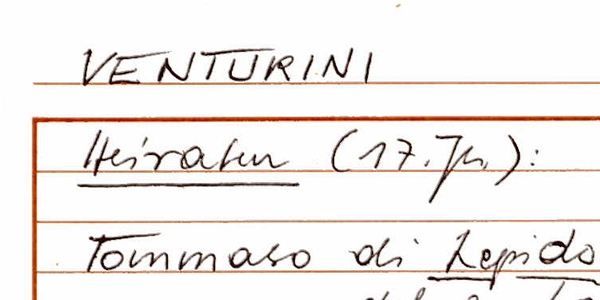 VENTURINI
Heiraten (17. Jh.):
Tommaso di Lepido